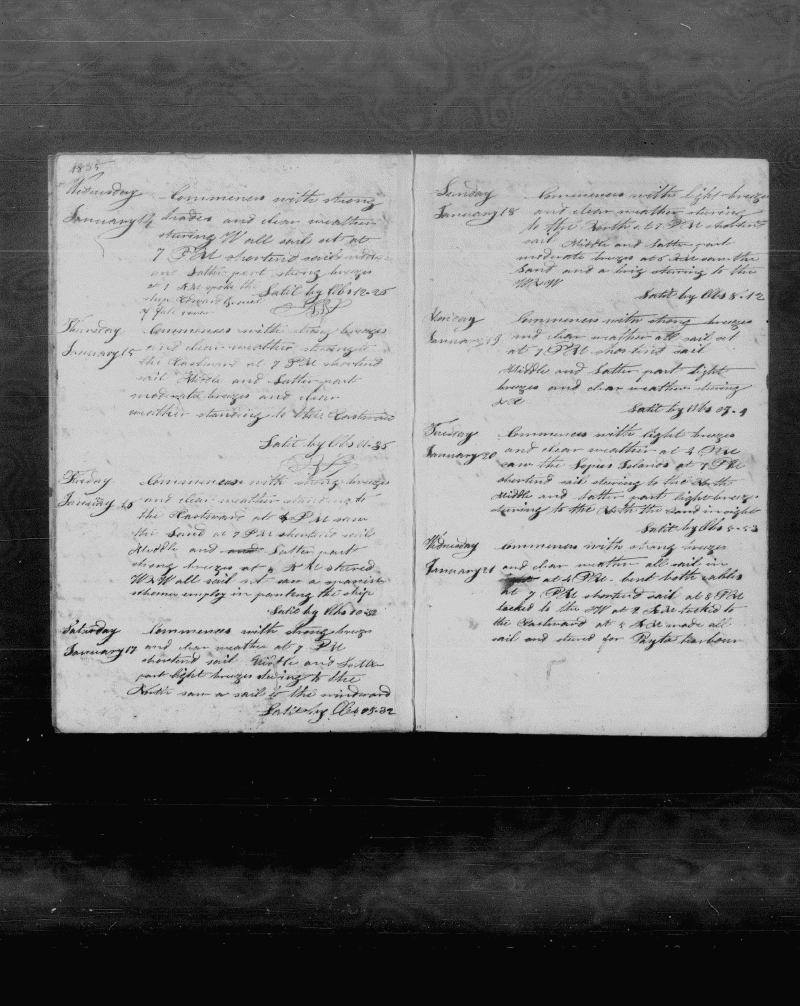 1835
Wednesday Commences with strong
January 14 trades and clear weather
stering W all sail set at
7 PM shortend sail middle
and Latter part strong breezes
at 1 AM spoke the
ship Edward Latit by Obs 12-25
of fall river
Thursday Commences with strong breezes
January 15 and clear weather
the Eastward at 7 PM shortend
sail Middle and Latter part
moderate breezes and clear
weather standing to the Eastward
Latit by Obs 11-35
Friday Commences with strong breezes
January 16 and clear weather standing to
the Eastward at PM saw
the Land at 7 PM shortend sail
Middle and Latter part
strong breezes at AM stered
all sail set saw a spanish
employ in painting the ship
Latit by Obs 10-
Saturday Commences with strong breezes
January 17 and clear weather at 7 PM
shortend sail Middle and Latter
part light breezes stering to the
saw a sail to the windward
Latit by Obs 09-32
Sunday Commences with light breezes
January 18 and clear weather stering
to the North at 7 PM shortend
sail Middle and Latter part
moderate breezes at 6 AM saw the
Land and a brig stering to the
Latit by Obs 8-12
Monday Commences with strong breezes
January 19 and clear weather all sail set
at 7 PM shortend sail
Middle and Latter part light
breezes and clear weather stering
Latit by Obs 07-4
Tuesday Commences with light breezes
January 20 and clear weather at 4 PM
saw the Islands at 7 PM
shortend sail stering to the North
Middle and Latter part light breezes
stering to the North the Land in sight
Latit by Obs
Wednesday Commences with strong breezes
January 21 and clear weather all sail in
at 4 PM bent both cables
at 7 PM shortend sail at 8 PM
tacked to the W at 2 AM tacked to
the Eastward at AM made all
sail and stered for Payta harbour